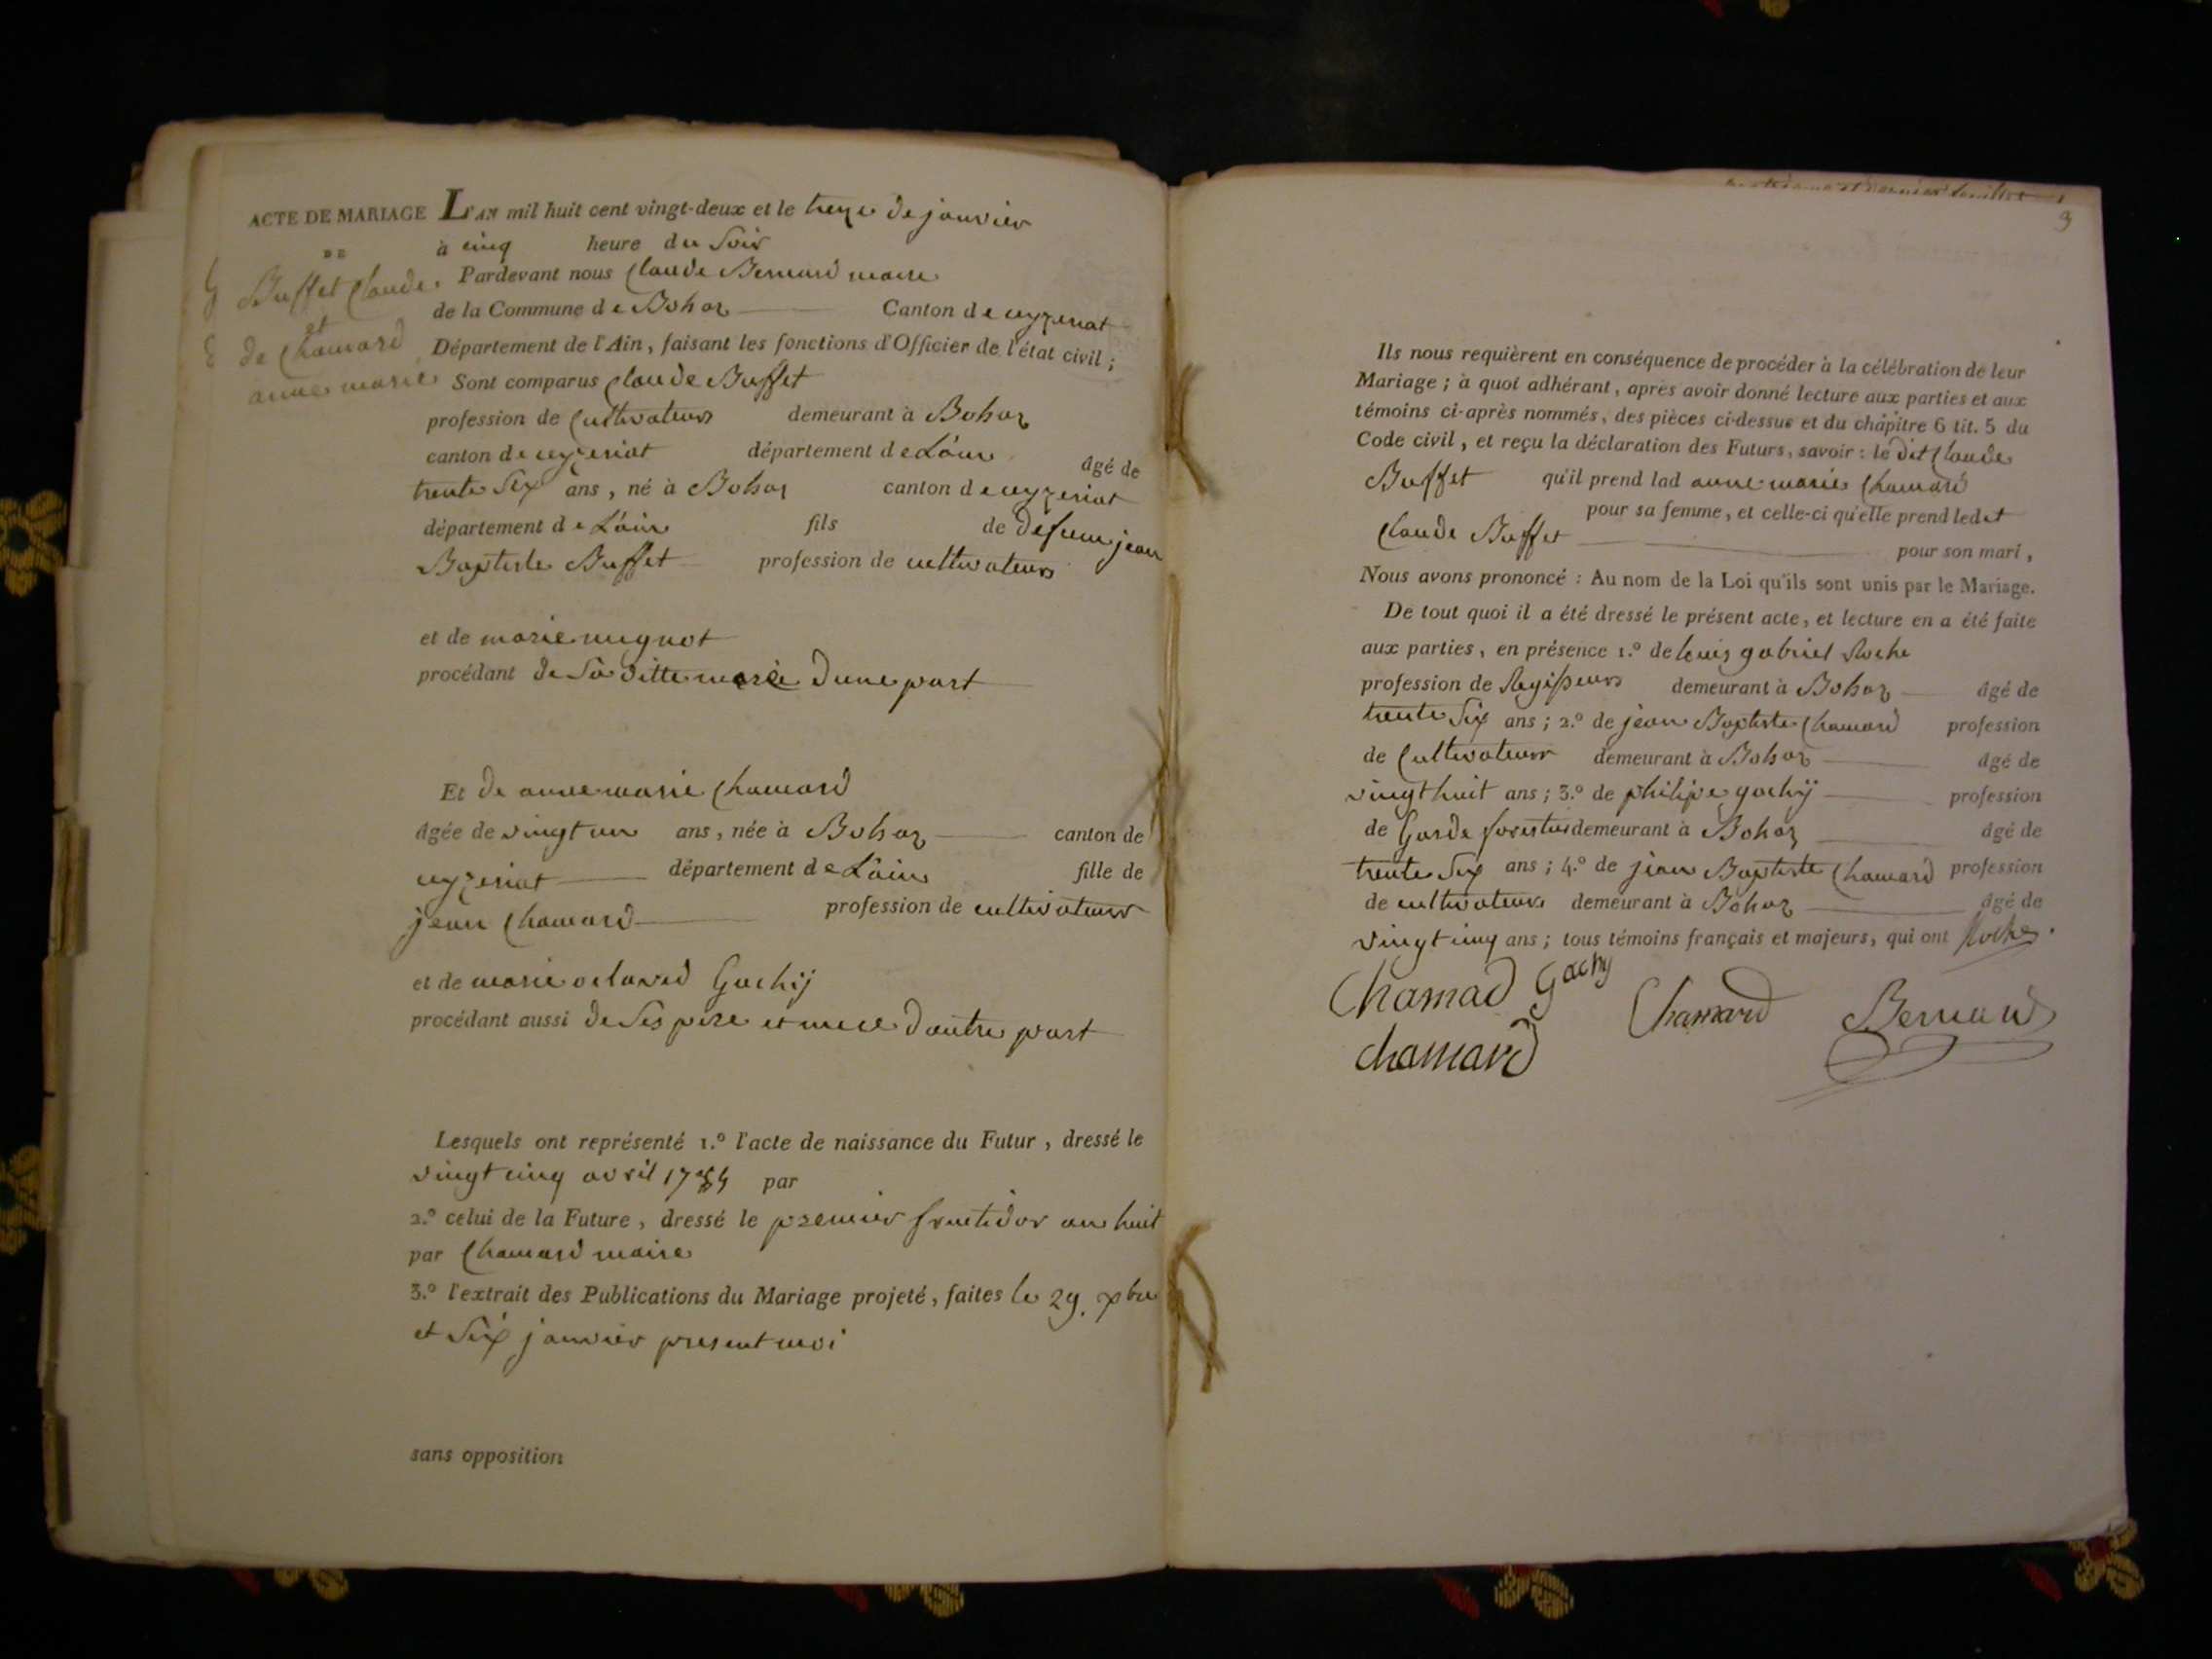 ACTE DE MARIAGE
DE
Buffet Claude
et
de Chamard
anne marie
L'AN mil huit cent vingt-deux et le treze de janvier
à cinq heure du Soir
Pardevant nous Claude Bernard maire
de la Commune de Bohas Canton de ceyzeriat
Département de l'Ain, faisant les fonctions d'Officier de l'état civil ;
Sont comparus Claude Buffet
profession de Cultivateur demeurant à Bohas
canton de ceyzeriat département de L'ain âgé de
trente Six ans, né à Bohas canton de ceyzeriat
département de L'ain fils de defunt jean
Baptiste Buffet profession de cultivateur
et de marie mignot
procédant de Sa ditte mere Dune part
Et de anne marie Chamard
âgée de vingt un ans, née à Bohas canton de
ceyzeriat département de L'ain fille de
jean Chamard profession de cultivateur
et de marie Gachij
procédant aussi de Ses pere et mere Dautre part
Lesquels ont représenté 1.º l'acte de naissance du Futur, dressé le
vingt cinq avril par
2.º celui de la Future, dressé le premier fructidor an huit
par Chamard maire
3.º l'extrait des Publications du Mariage projeté, faites le 29. Xbre
et Six janvier present moi
sans opposition
3
Ils nous requièrent en conséquence de procéder à la célébration de leur
Mariage ; à quoi adhérant, après avoir donné lecture aux parties et aux
témoins ci-après nommés, des pièces ci-dessus et du chapitre 6 tit. 5 du
Code civil, et reçu la déclaration des Futurs, savoir : le dit Claude
Buffet qu'il prend lad anne marie Chamard
pour sa femme, et celle-ci qu'elle prend ledit
Claude Buffet pour son mari,
Nous avons prononcé : Au nom de la Loi qu'ils sont unis par le Mariage.
De tout quoi il a été dressé le présent acte, et lecture en a été faite
aux parties, en présence 1.º de louis gabriel Roche
profession de Regisseur demeurant à Bohas âgé de
trente Six ans ; 2.º de jean Baptiste Chamard profession
de Cultivateur demeurant à Bohas âgé de
vingt huit ans ; 3.º de philipe gachij profession
de Garde forestier demeurant à Bohas âgé de
trente Six ans ; 4.º de jean Baptiste Chamard profession
de cultivateur demeurant à Bohas âgé de
vingt cinq ans ; tous témoins français et majeurs, qui ont Roche
Chamad Gachy Chamard Bernard
chamard